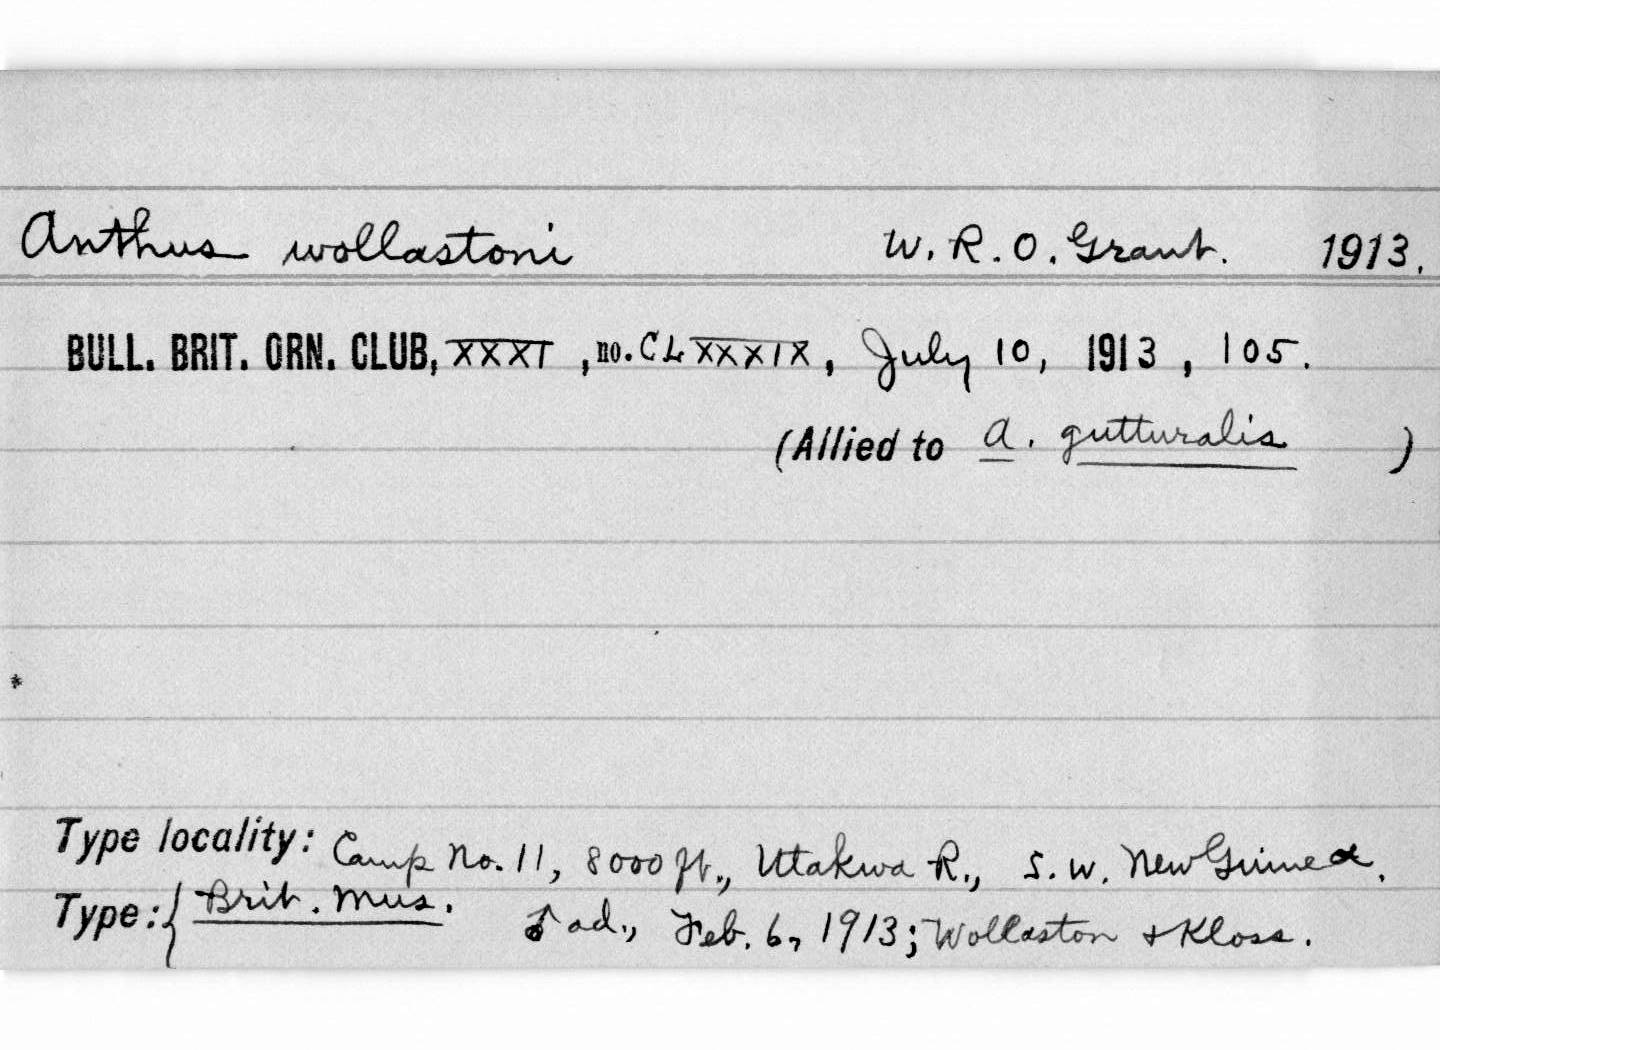 Anthus wollastoni W. R. O. Grant. 1913.
BULL. BRIT. ORN. CLUB, XXXI, no. CLXXXIX, July 10, 1913, 105.
(Allied to A. gutturalis)
*
Type locality: Camp No. 11, 8000 ft., Utakwa R., S. W. New Guinea.
Type: { Brit. Mus. ♂ ad., Feb. 6, 1913; Wollaston & Kloss.